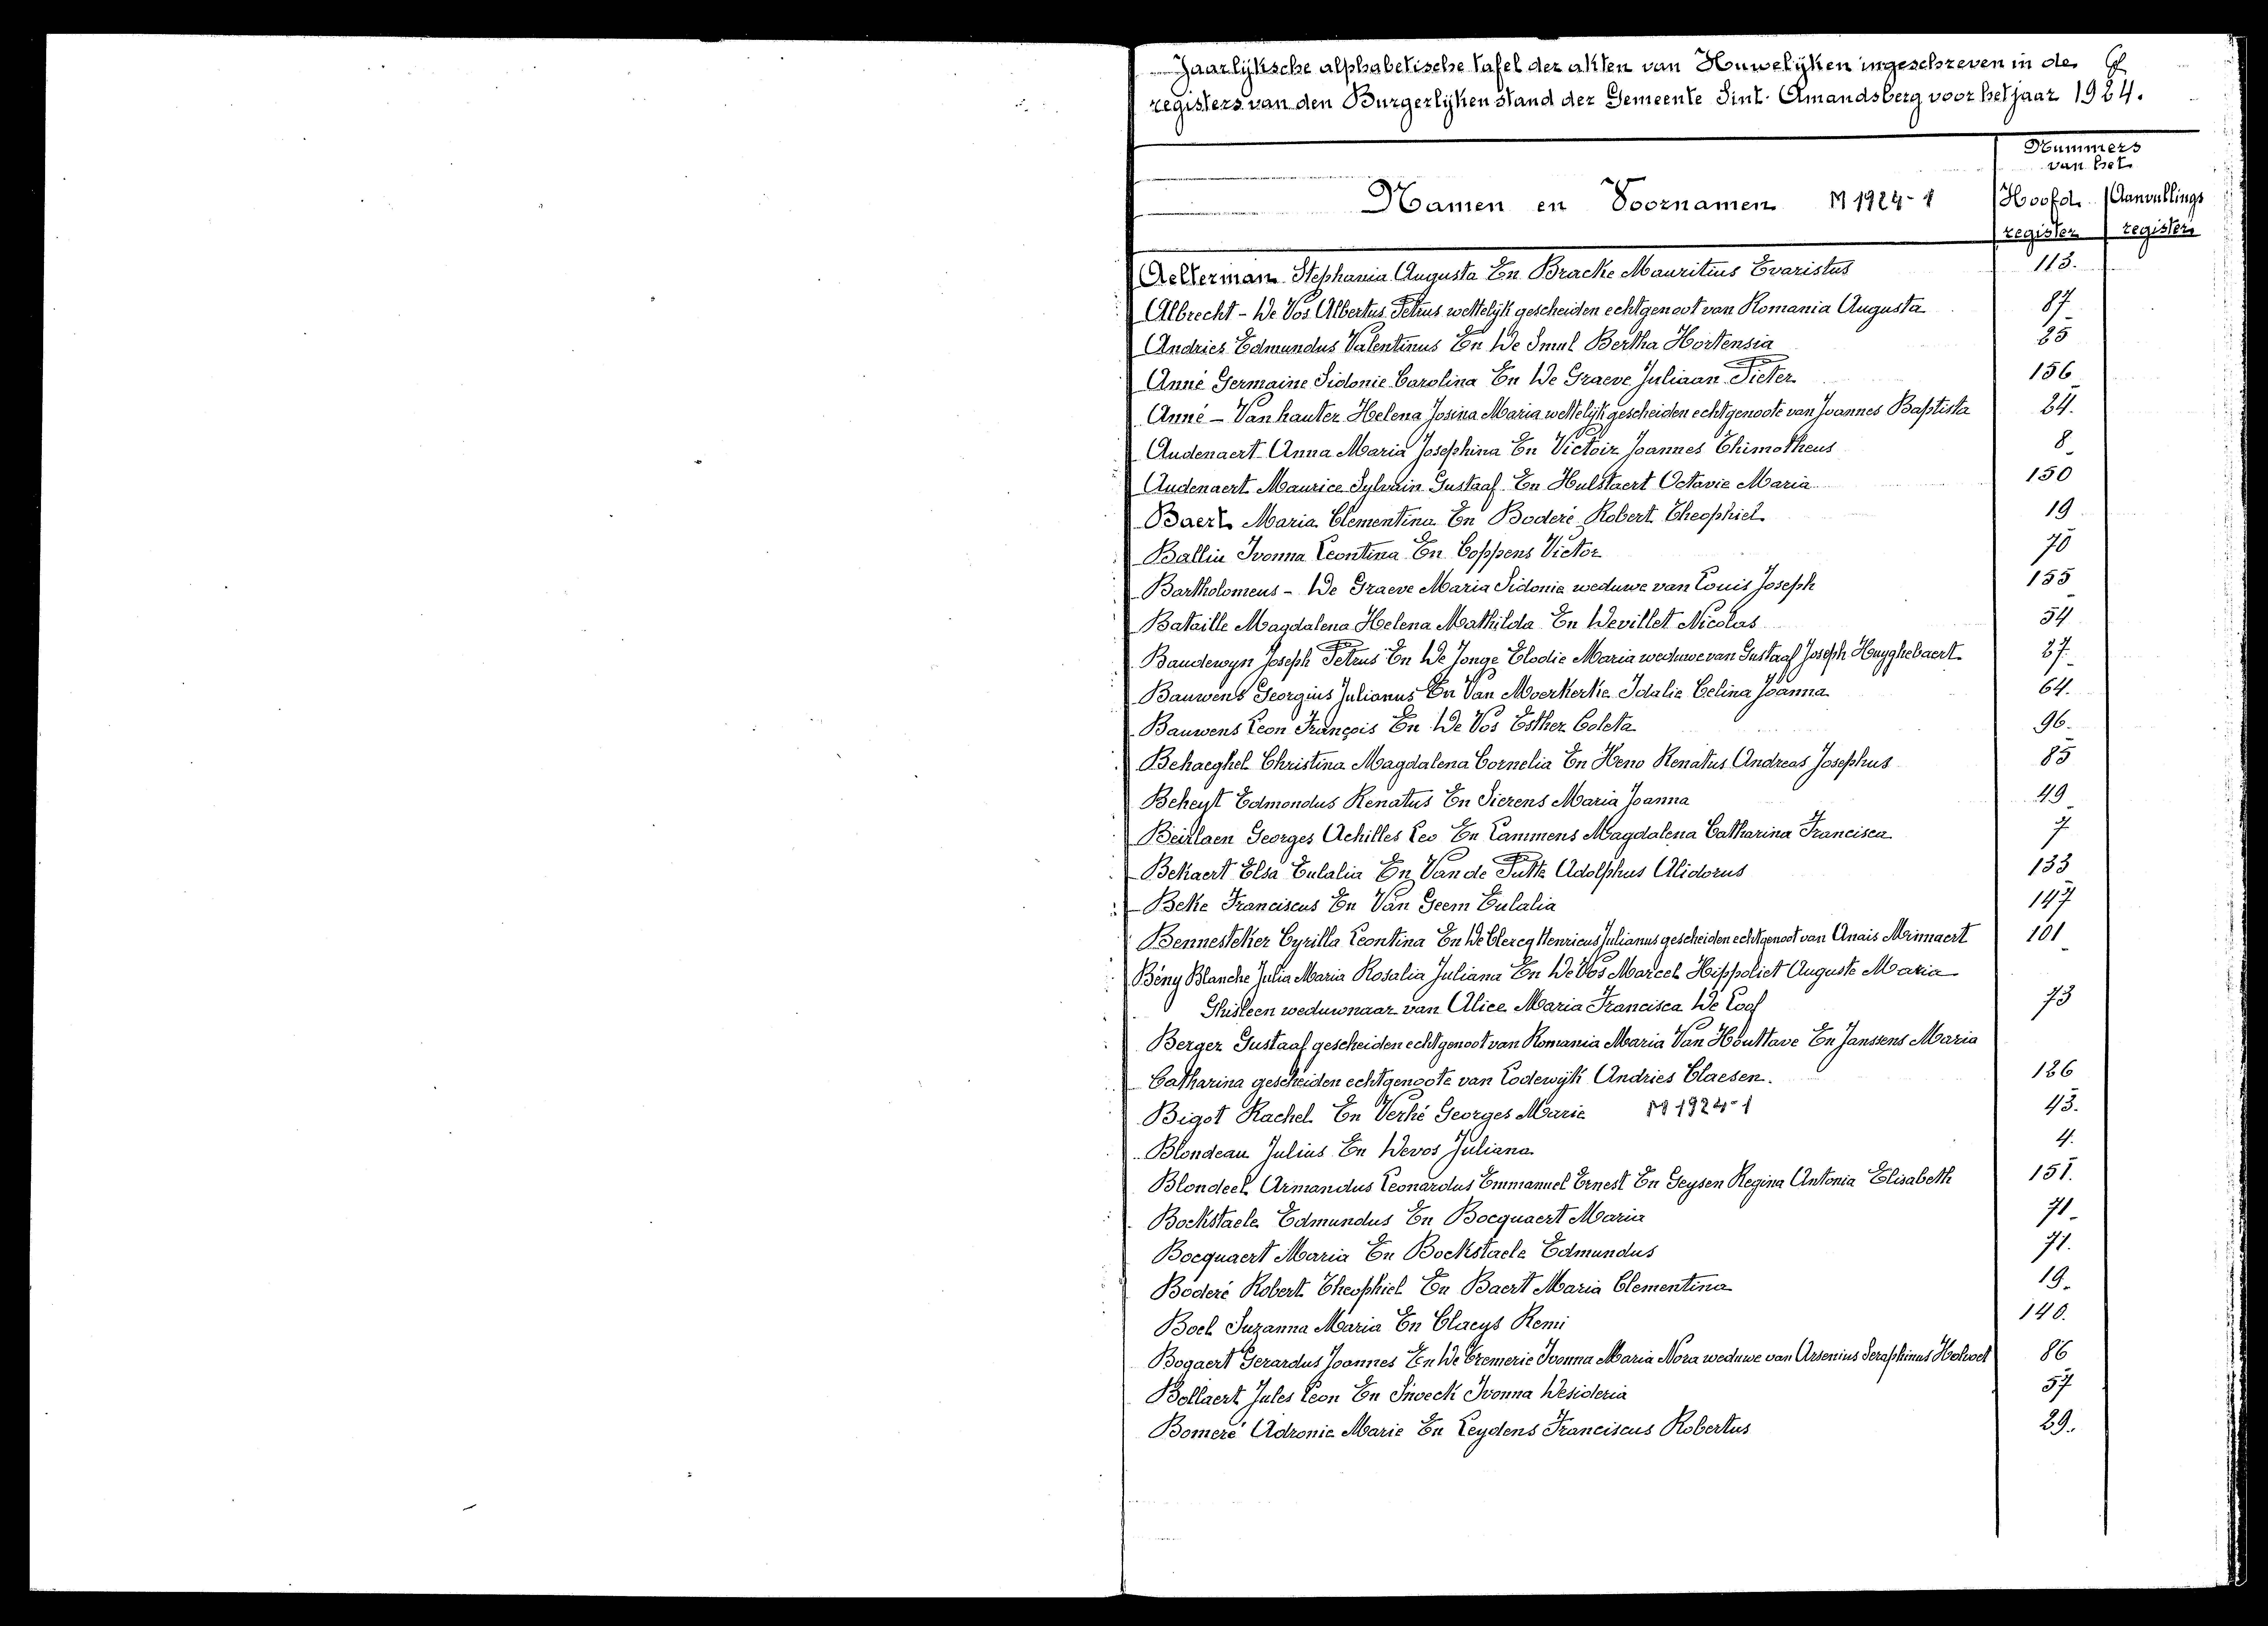 Jaarlijksche alphabetische tafel der akten van Huwelijken ingeschreven in de
registers van den Burgerlijken stand der Gemeente Sint-Amandsberg voor het jaar 1924.
Nummers
van het
Namen en Voornamen M 1924-1 Hoofd Aanvullings
register register
Aelterman Stephania Augusta En Bracke Mauritius Evaristus 113.
Albrecht - De Vos Albertus Petrus wettelijk gescheiden echtgenoot van Romania Augusta 87
Andries Edmundus Valentinus En De Smul Bertha Hortensia 25
Anné Germaine Sidonie Carolina En De Graeve Juliaan Pieter 156
Anné - Vanhauter Helena Josina Maria wettelijk gescheiden echtgenoote van Joannes Baptista 24.
Audenaert Anna Maria Josephina En Victoir Joannes Thimotheus 8
Audenaert Maurice Sylvain Gustaaf En Hulstaert Octavie Maria 150
Baert Maria Clementina En Boderé Robert Theophiel 19
Balliu Ivonna Leontina En Coppens Victor 70
Bartholomeus - De Graeve Maria Sidonie weduwe van Louis Joseph 155
Bataille Magdalena Helena Mathilda En Devillet Nicolas 54
Baudewyn Joseph Petrus En De Jonge Elodie Maria weduwe van Gustaaf Joseph Huyghebaert 27
Bauwens Georgius Julianus En Van Moerkerke Idalie Celina Joanna 64.
Bauwens Leon François En De Vos Esther Coleta 96.
Behaeghel Christina Magdalena Cornelia En Heno Renatus Andreas Josephus 85
Beheyt Edmondus Renatus En Sierens Maria Joanna 49
Beirlaen Georges Achilles Leo En Lammens Magdalena Catharina Francisca 7
Bekaert Elsa Eulalia En Van de Putte Adolphus Alidorus 133
Beke Franciscus En Van Geem Eulalia 147
Bennesteker Cyrilla Leontina En De Clercq Henricus Julianus gescheiden echtgenoot van Anais Minnaert 101
Bény Blanche Julia Maria Rosalia Juliana En De Vos Marcel Hippoliet Auguste Maria
Ghisleen weduwnaar van Alice Maria Francisca De Loof 73
Berger Gustaaf gescheiden echtgenoot van Romania Maria Van Houttave En Janssens Maria
Catharina gescheiden echtgenoote van Lodewijk Andries Claesen. 126
Bigot Rachel En Verhé Georges Marie M 1924-1 43.
Blondeau Julius En Devos Juliana 4.
Blondeel Armandus Leonardus Emmanuel Ernest En Geysen Regina Antonia Elisabeth 151.
Bockstaele Edmundus En Bocquaert Maria 71
Bocquaert Maria En Bockstaele Edmundus 71.
Boderé Robert Theophiel En Baert Maria Clementina 19.
Boel Suzanna Maria En Claeys Remi 140.
Bogaert Gerardus Joannes En De Cremerie Ivonna Maria Nora weduwe van Arsenius Seraphinus Holvoet 86
Bollaert Jules Leon En Snoeck Ivonna Desideria 57
Bomeré Adronie Marie En Leydens Franciscus Robertus 29.